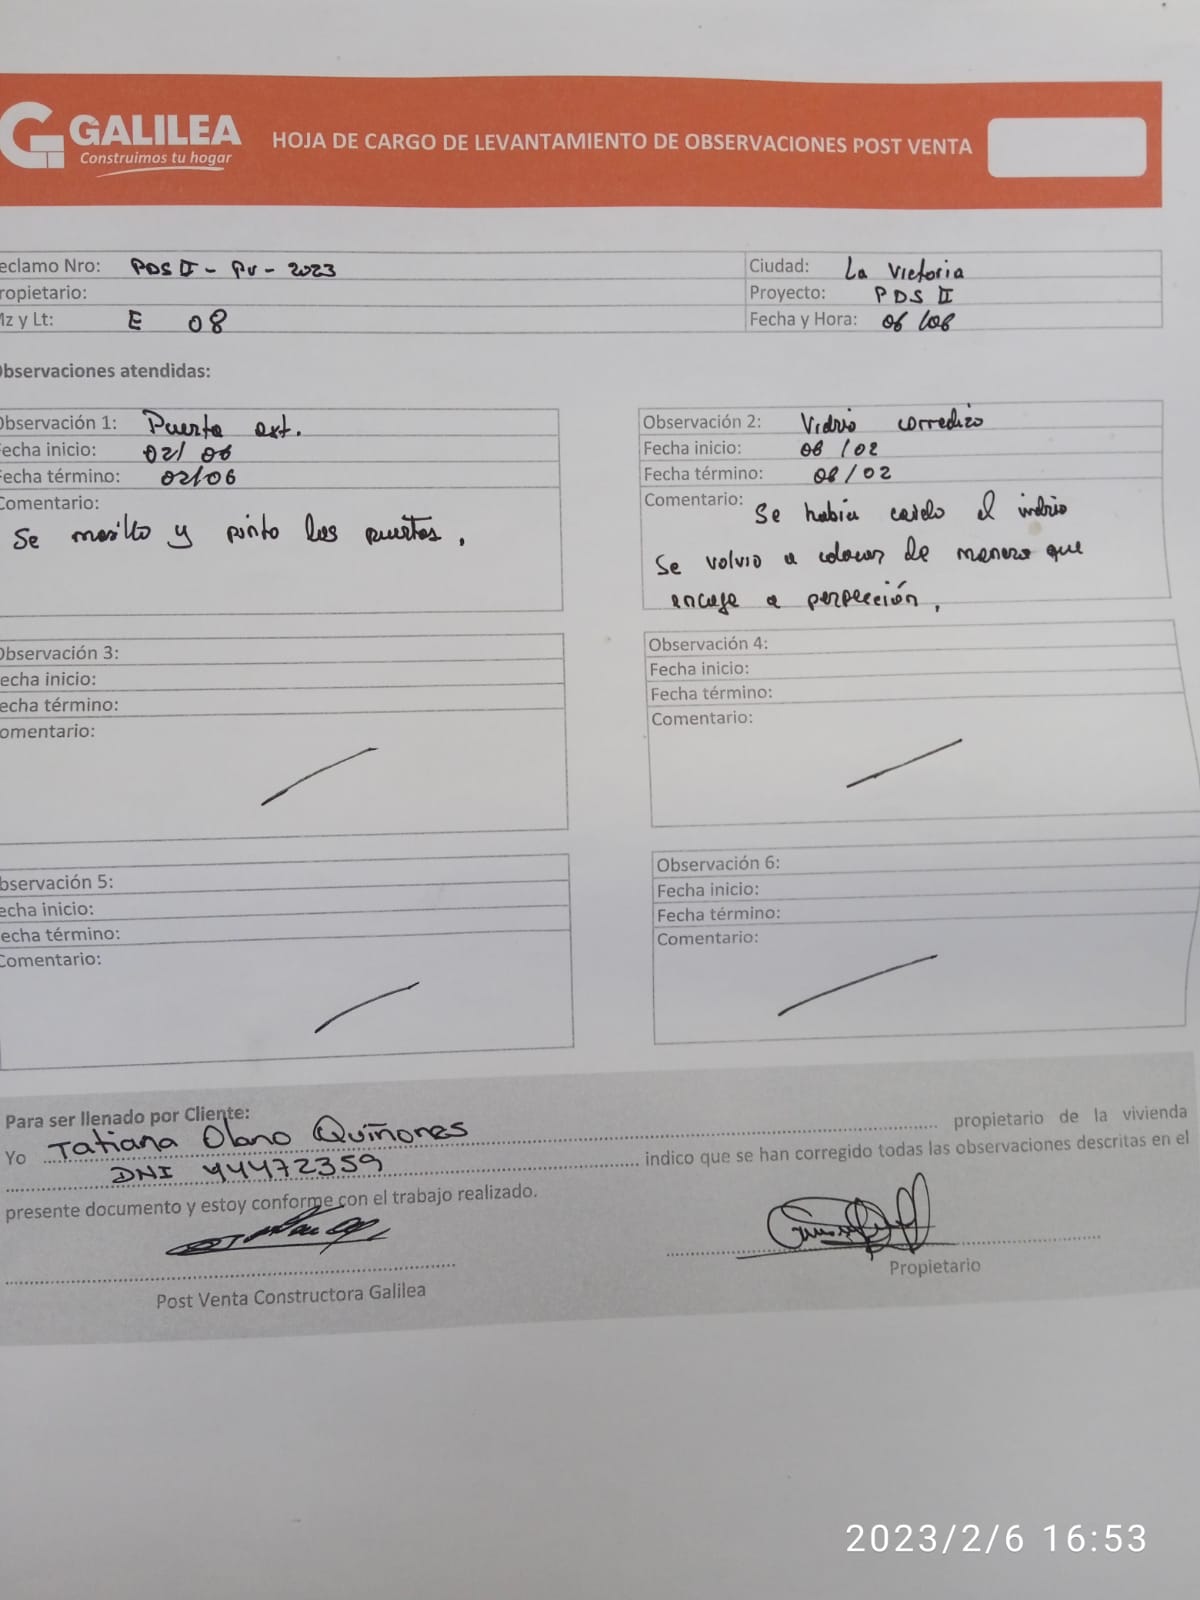 GALILEA
Construimos tu hogar
HOJA DE CARGO DE LEVANTAMIENTO DE OBSERVACIONES POST VENTA
eclamo Nro: PDS II - PV - 2023
Ciudad: La Victoria
ropietario:
Proyecto: PDS II
Mz y Lt: E 08
Fecha y Hora: 06 /06
Observaciones atendidas:
Observación 1: Puerta ext.
Fecha inicio: 02/ 06
Fecha término: 02/06
Comentario:
Se masillo y pinto las puertas.
Observación 2: Vidrio corredizo
Fecha inicio: 06 /02
Fecha término: 06/02
Comentario: Se había caido el vidrio
Se volvio a colocar de manera que
encaje a perfección.
Observación 3:
echa inicio:
echa término:
omentario:
Observación 4:
Fecha inicio:
Fecha término:
Comentario:
bservación 5:
echa inicio:
echa término:
Comentario:
Observación 6:
Fecha inicio:
Fecha término:
Comentario:
Para ser llenado por Cliente:
Yo Tatiana Olano Quiñones propietario de la vivienda
DNI 44472359 indico que se han corregido todas las observaciones descritas en el
presente documento y estoy conforme con el trabajo realizado.
Post Venta Constructora Galilea
Propietario
2023/2/6 16:53